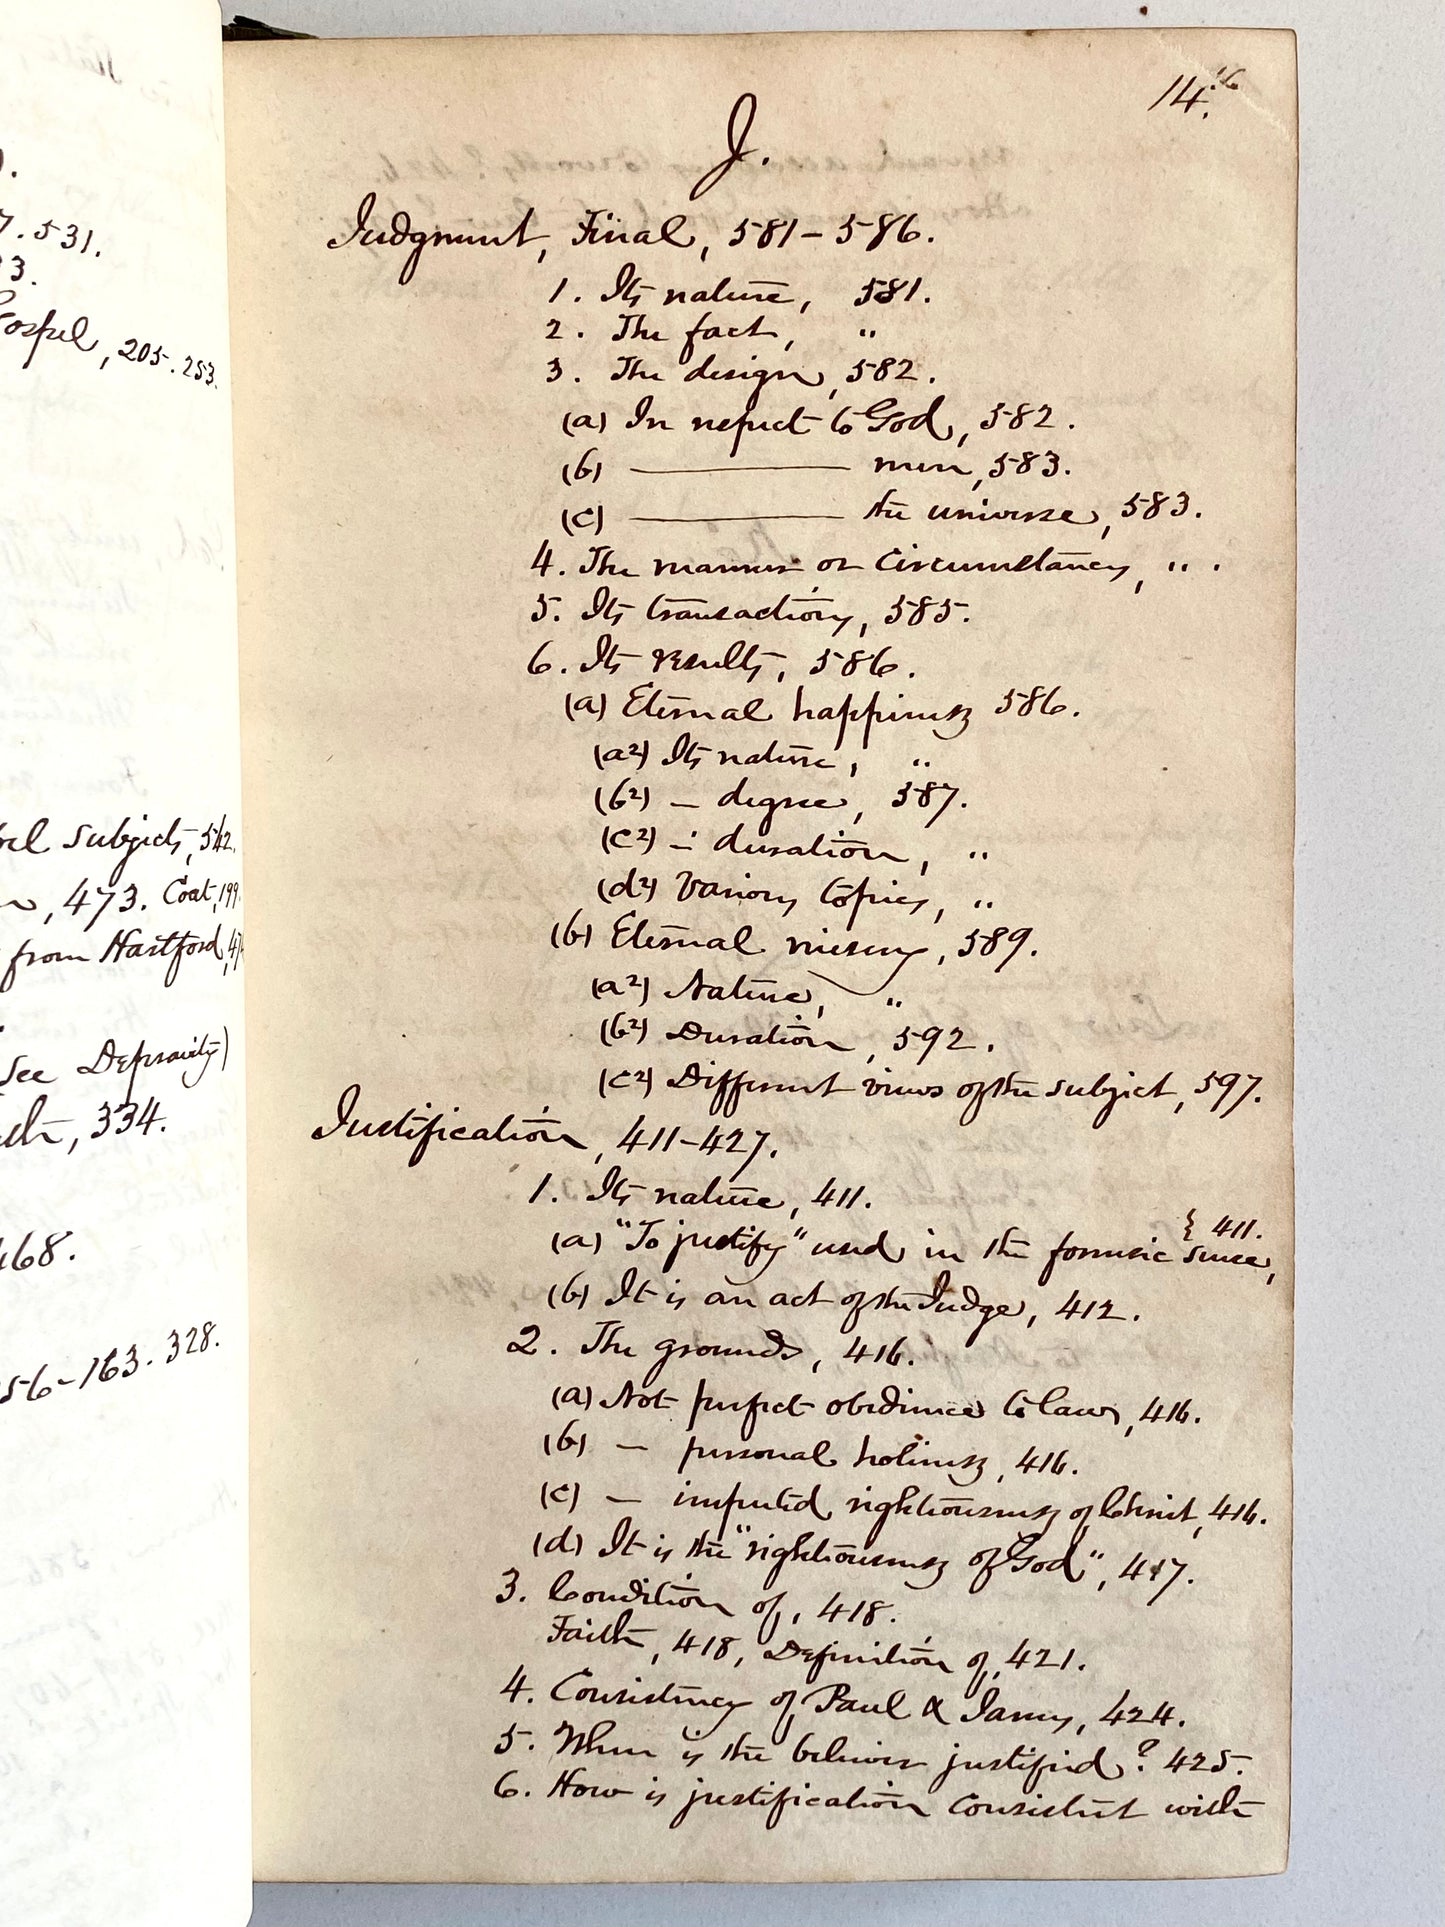 7.531.
3.
Gospel, 205.253.
subjects, 542.
, 473. Coat, 199.
from Hartford, 47
See Depravity)
, 334.
468.
56-163. 328.
14.
J.
Judgment, Final, 581-586.
1. Its nature, 581.
2. The fact, "
3. The design, 582.
(a) In respect to God, 582.
(b) ——— men, 583.
(c) ——— the universe, 583.
4. The manner or circumstances, " .
5. Its transactions, 585.
6. Its results, 586.
(a) Eternal happiness 586.
(a2) Its nature, "
(b2) — degree, 587.
(c2) — duration, "
(d2) Various topics, "
(b) Eternal misery, 589.
(a2) Nature, "
(b2) Duration, 592.
(c2) Different views of the subject, 597.
Justification, 411-427.
1. Its nature, 411.
(a) "To justify" used in the forensic sense, { 411.
(b) It is an act of the Judge, 412.
2. The grounds, 416.
(a) Not perfect obedience to law, 416.
(b) — personal holiness, 416.
(c) — imputed righteousness of Christ, 416.
(d) It is the "righteousness of God", 417.
3. Condition of, 418.
Faith, 418, Definition of, 421.
4. Consistency of Paul & James, 424.
5. When is the believer justified? 425.
6. How is justification consistent with